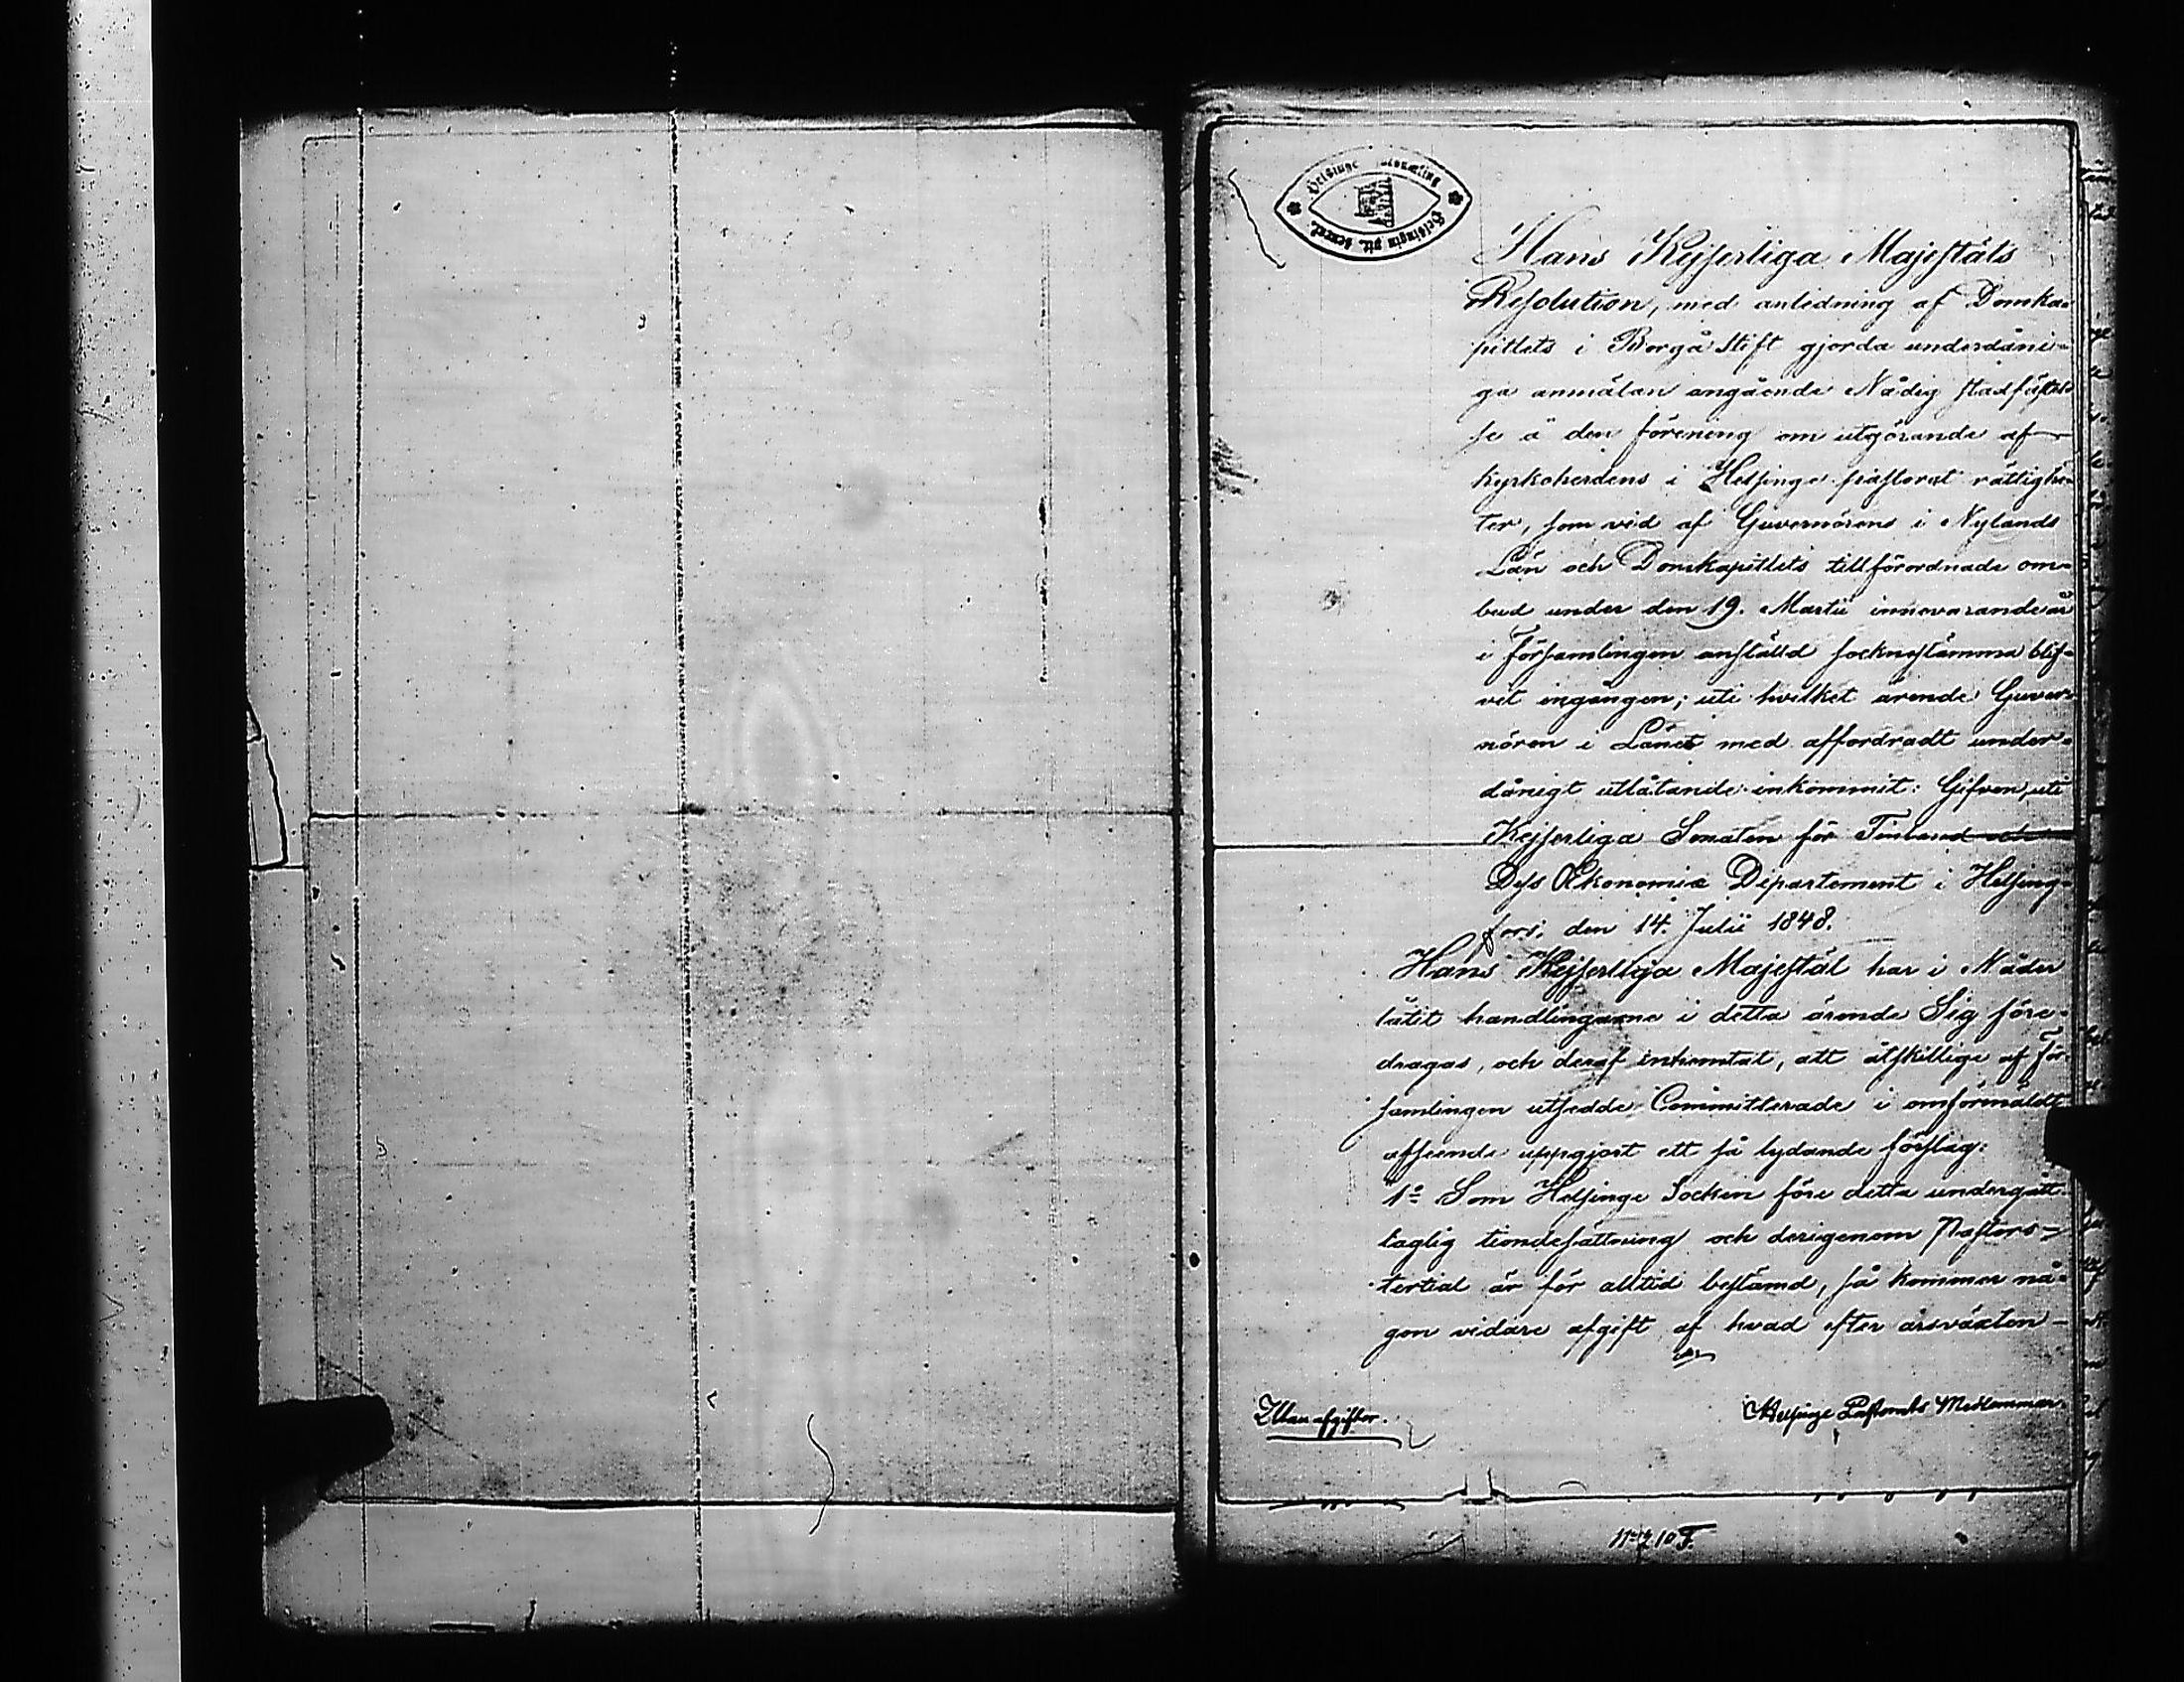 Helsinge
Helsingin pit. seurak.
Hans Kejserliga Majestäts
Resolution, med anledning af Domka-
pitlets i Borgå Stift gjorda underdåni-
ga anmälan angående Nådig stadfästel-
se å den förening om utgörande af
kyrkoherdens i Helsinge pastorat rättighe-
ter, som vid af Guvernörens i Nylands
Län och Domkapitlets tillförordnade om-
bud under den 19. Martii innevarande år
i Församlingen anställd socknestämma blif-
vit ingången; uti hvilket ärende Guver-
nören i Länet med affordradt under-
dånigt utlåtande inkommit: Gifven, uti
Kejserliga Senaten för Finland
Dess Œkonomiæ Departement i Helsing-
fors, den 14. Julii 1848.
Hans Kejserliga Majestät har i Nåder
låtit handlingarne i detta ärende Sig före-
dragas, och deraf inhemtat, att åtskillige af För
samlingen utsedde Committerade i omförmäldt
afseende uppgjort ett så lydande förslag:
1o Som Helsinge Socken före detta undergått
laglig tiondesättning och derigenom Pastors-
tertial är för alltid bestämd, så kommer nå-
gon vidare afgift af hvad efter årsväxten
Utan afgifter.
Helsinge Pastorats Medlemmar
No 210